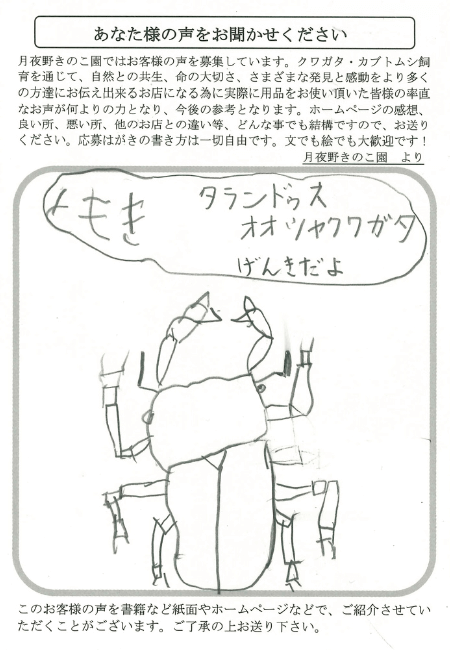 あなた様の声をお聞かせください
月夜野きのこ園ではお客様の声を募集しています。クワガタ・カブトムシ飼
育を通じて、自然との共生、命の大切さ、さまざまな発見と感動をより多く
の方達にお伝え出来るお店になる為に実際に用品をお使い頂いた皆様の率直
なお声が何よりの力となり、今後の参考となります。ホームページの感想、
良い所、悪い所、他のお店との違い等、どんな事でも結構ですので、お送り
ください。応募はがきの書き方は一切自由です。文でも絵でも大歓迎です！
月夜野きのこ園　より
よもぎ
タランドゥス
オオツヤクワガタ
げんきだよ
このお客様の声を書籍など紙面やホームページなどで、ご紹介させてい
ただくことがございます。ご了承の上お送り下さい。